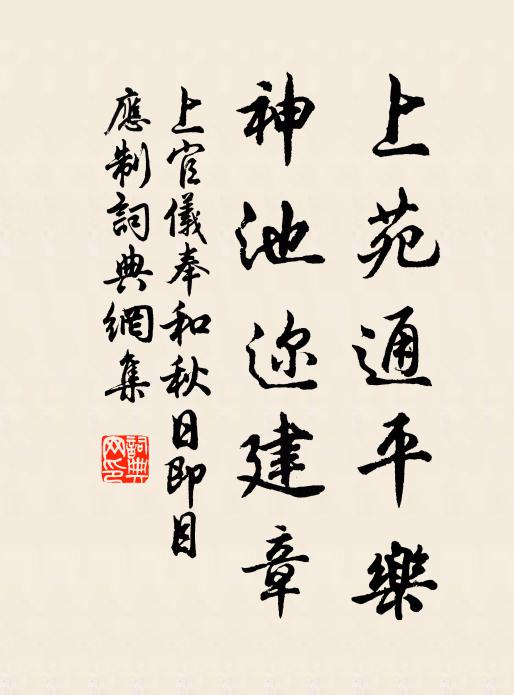 上苑通平樂
神池迩建章
上官儀奉和秋日即目
應制詞典網集
詞典网印